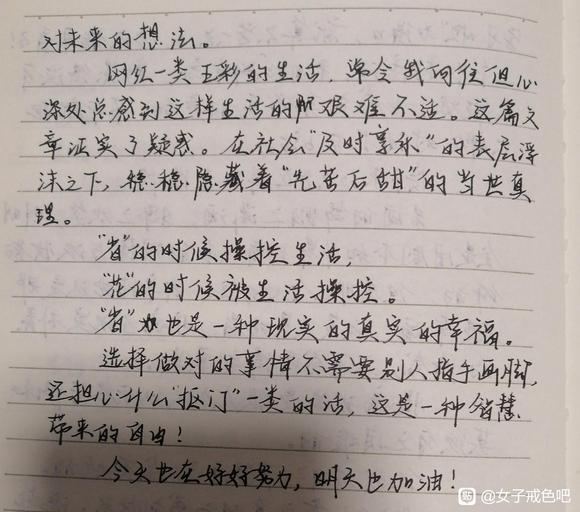 对未来的想法。
网红一类五彩的生活，常令我向往但心
深处总感到这样生活的艰难不适。这篇文
章证实了疑惑。在社会"及时享乐"的表层浮
沫之下，稳稳隐藏着"先苦后甜"的当世真
理。
"省"的时候操控生活，
"花"的时候被生活操控。
"省"也是一种现实的真实的幸福。
选择做对的事情不需要别人指手画脚，
还担心什么"抠门"一类的话，这是一种智慧
带来的自由！
今天也在好好努力，明天也加油！
贴 @女子戒色吧